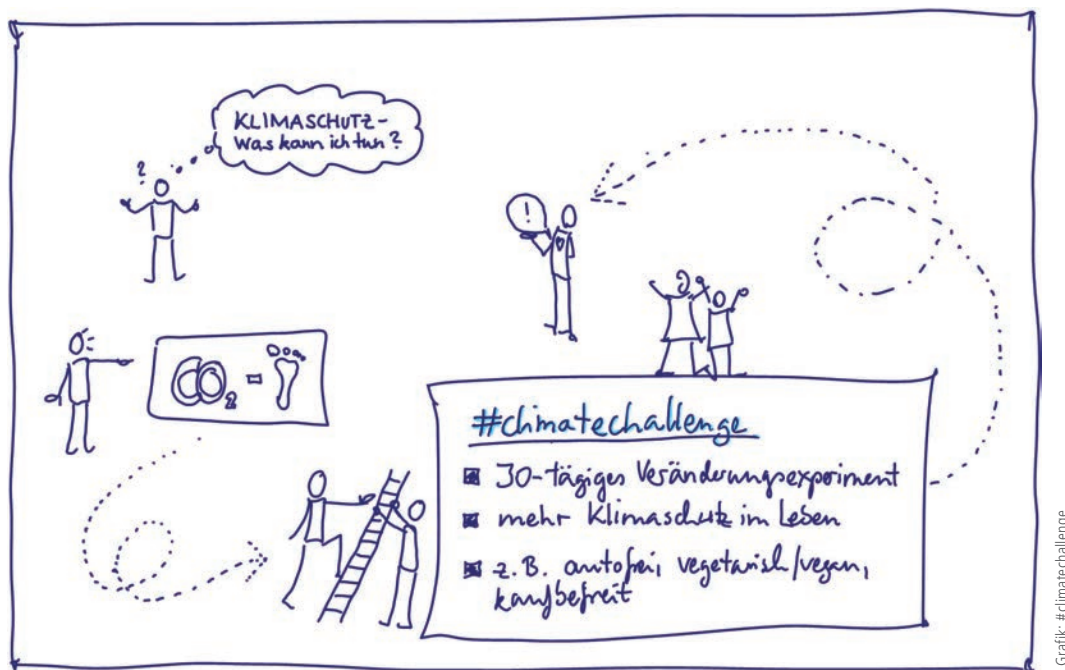 KLIMASCHUTZ-
Was kann ich tun?
?
!
CO₂ =
#climatechallenge
30-tägiges Veränderungsexperiment
mehr Klimaschutz im Leben
z.B. autofrei, vegetarisch/vegan,
kaufbefreit
Grafik: #climatechallenge